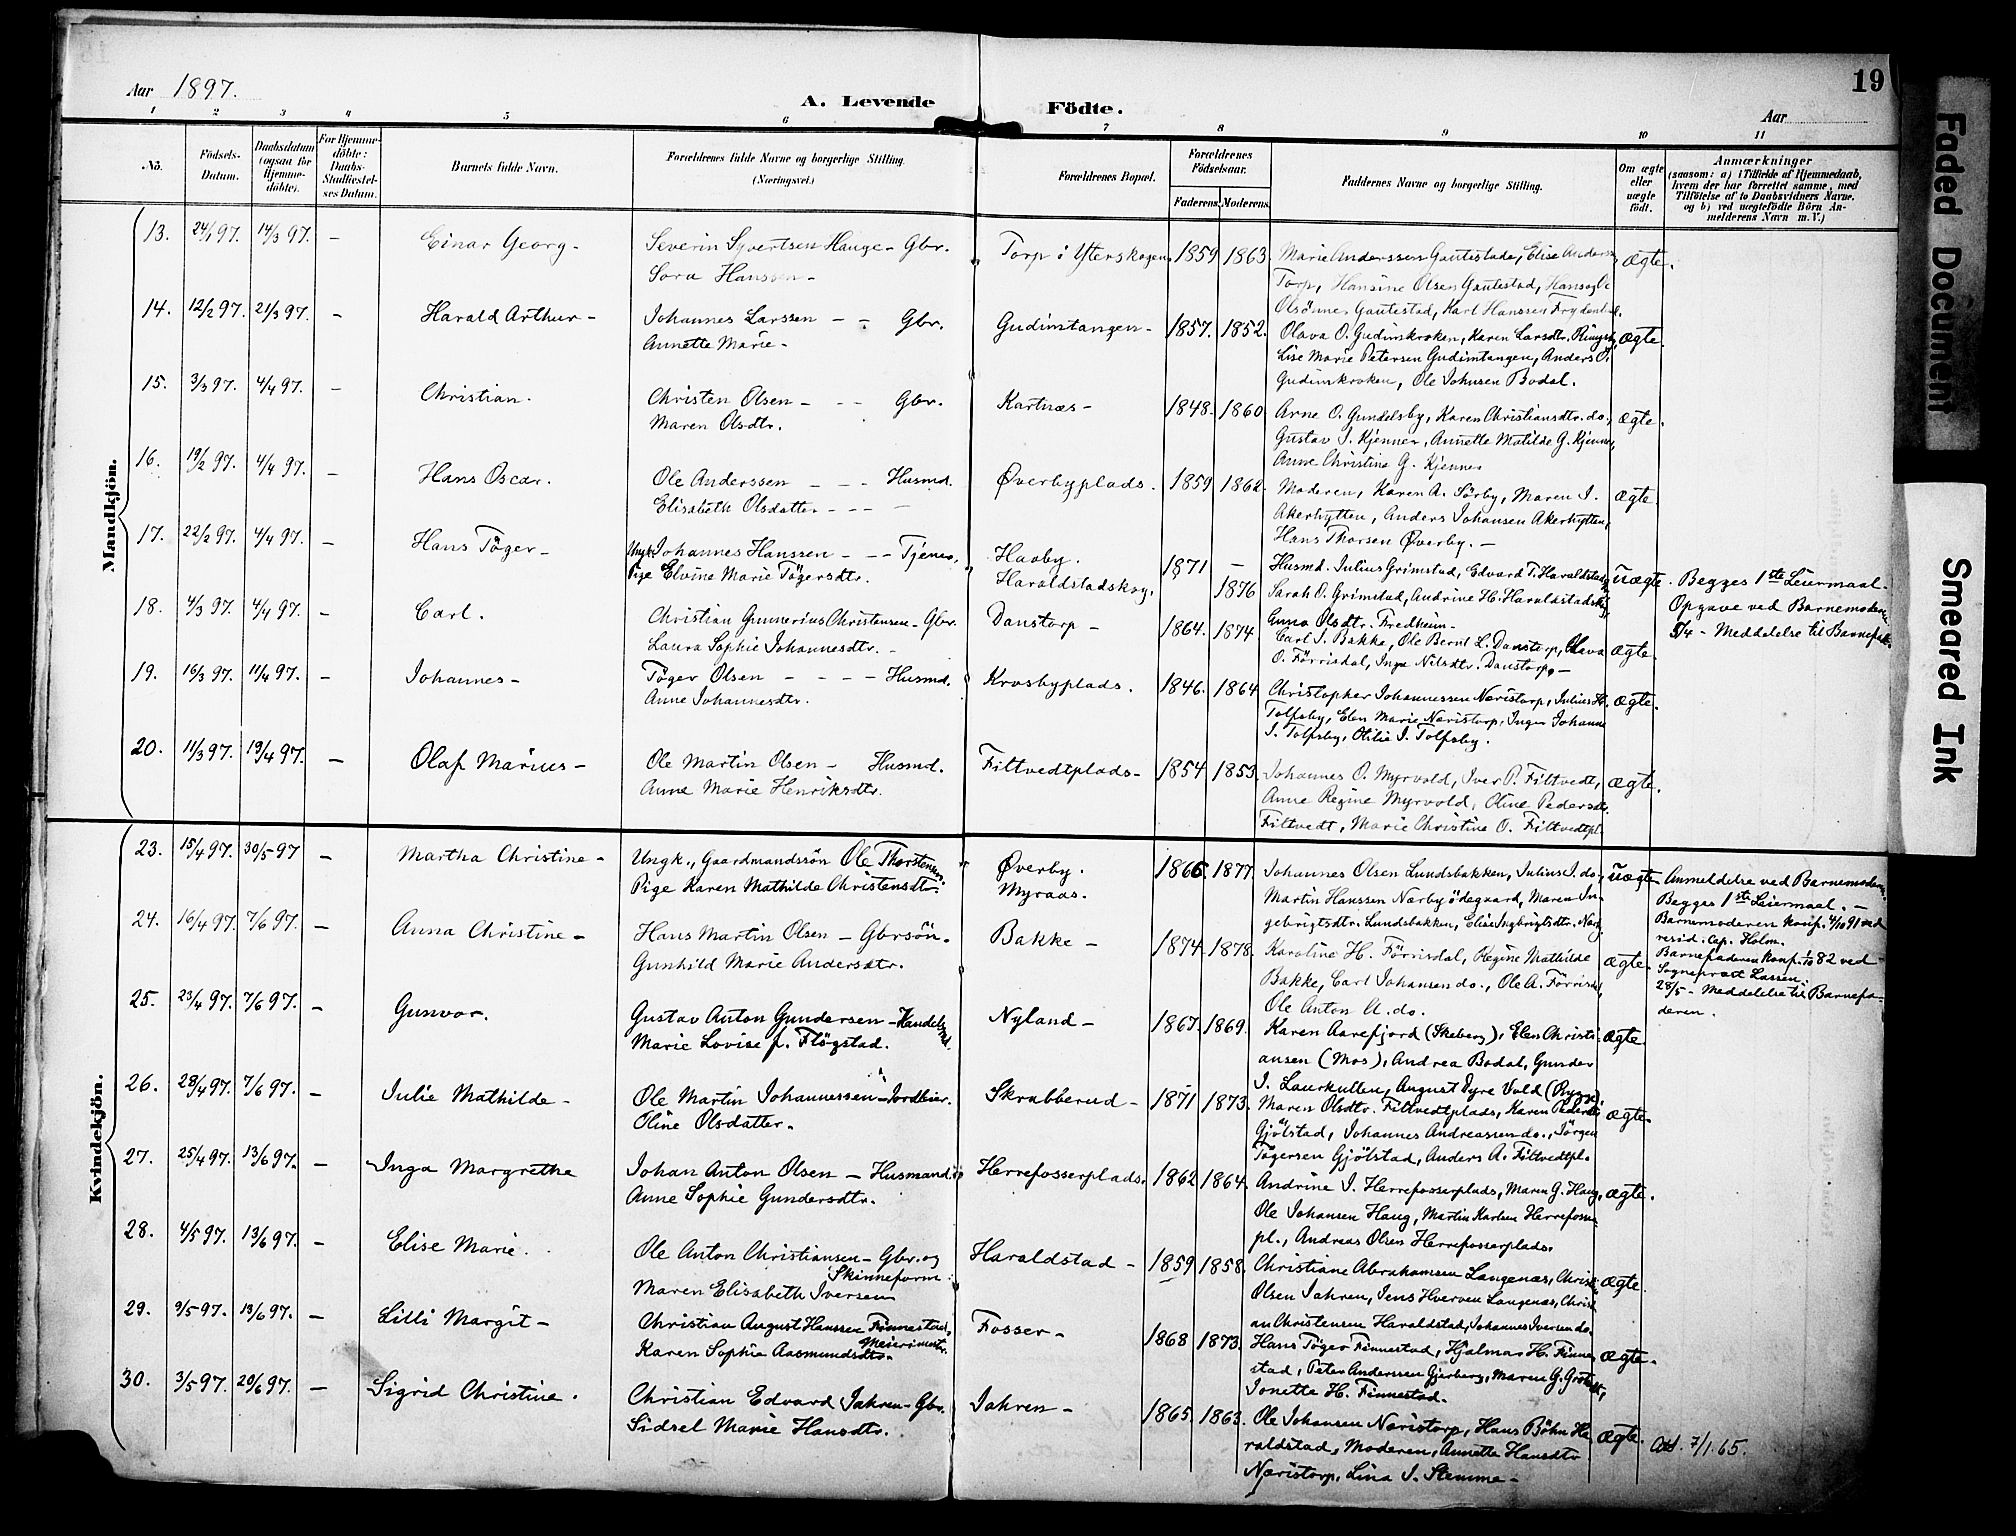 19
Aar 1897.
A. Levende Födte.
Aar
1 2 3 4 5 6 7 8 9 10 11
No.
Födsels-Datum.
Daabsdatum (ogsaa for Hjemme-döbte).
For Hjemme-döbte: Daabs-Stadfæstel-ses Datum.
Barnets fulde Navn.
Forældrenes fulde Navne og borgerlige Stilling. (Næringsvei.)
Forældrenes Bopæl.
Forældrenes Födselsaar.
Faderens. Moderens.
Faddernes Navne og borgerlige Stilling.
Om ægte eller uægte födt.
Anmærkninger
(saasom: a) i Tilfælde af Hjemmedaab, hvem der har forrettet samme, med Tilföielse af to Daabsvidners Navne. og b) ved uægtefödte Börn An-melderens Navn m. V.)
Mandkjön.
13. 24/1 97. 14/3 97. – Einar Georg – Severin Syvertsen Hauge – Gbr. Torp i Ytterskogen 1859 1863. Marie Anderssen Gautestad, Elise Anderss. ægte.
Sora Hanssen – Torp, Hansine Olsen Gautestad,
Gautestad, Karl Hanssen
14. 12/2 97. 21/3 97. – Harald Arthur – Johannes Larssen – – Gbr. Gudimtangen – 1857. 1852. Olava O. Gudimkroken, Karen Larsdtr. ægte.
Annette Marie – Lise Marie Petersen Gudimtangen, Anders O.
Gudimkroken, Ole Johnsen Bodal.
15. 3/3 97. 4/4 97. – Christian. Christen Olsen – – – Gbr. Kartnæs – 1848. 1860. Arne O. Gundelsby, Karen Christiansdtr. do., ægte.
Maren Olsdtr. Gustav J. Kjenner, Annette Matilde G. Kjenner,
Anne Christine G. Kjenner
16. 19/2 97. 4/4 97. – Hans Oscar. Ole Anderssen – – – Husmd. Øverbyplads. 1859 1862. Moderen, Karen A. Sörby, Maren J. ægte.
Elisabeth Olsdatter – – – Akerhytten, Anders Johansen Akerhytten,
Hans Thorsen Øverby. –
17. 22/2 97. 4/4 97. – Hans Töger – Ungk. Johannes Hanssen – – – Tjener. Haaby. 1871 – Husmd. Julius Grimstad, Edvard T. Haraldstad uægte. Begges 1ste Leiermaal.
Pige Elvine Marie Tögersdtr. Haraldstadskog. 1876 Sarah O. Grimstad, Andrine H. Haraldstadsk. Opgave ved Barnemoderen
Anna Olsdtr. Fredheim – 5/4 – Meddelelse til Barnef.
18. 4/3 97. 4/4 97. – Carl. Christian Gunnerius Christensen – Gbr. Danstorp – 1864. 1874 Carl J. Bakke, Ole Bernt L. Danstorp, Olava ægte.
Laura Sophie Johannesdtr. – O. Förrisdal, Inga Nilsdtr. Danstorp. –
19. 16/3 97. 11/4 97. – Johannes – Töger Olsen – – – – Husmd. Krosbyplads. 1846. 1864 Christopher Johannessen Næristorp, Julius H. ægte.
Anne Johannesdtr. Tolfsby, Elen Marie Næristorp, Inger Johanne
J. Tolfsby, Otilie J. Tolfsby.
20. 11/3 97. 19/4 97. – Olaf Marius – Ole Martin Olsen – Husmd. Filtvedtplads – 1854 1853 Johannes O. Myrvold, Iver P. Filtvedt, ægte.
Anne Marie Henriksdtr. Anne Regine Myrvold, Oline Pedersdtr.
Filtvedt, Marie Christine O. Filtvedtpl.
Kvindekjön.
23. 15/4 97. 30/5 97 – Martha Christine – Ungk., Gaardmandssön Ole Thorstensen. Øverby. 1866 1877. Johannes Olsen Lundsbakken, Julius J. do, uægte Anmeldelse ved Barnemoderen.
Pige Karen Mathilde Christensdtr. Myraas. Martin Hanssen Nærby ödegaard, Maren In- Begges 1ste Leiermaal. –
gebrigtsdtr. Lundsbakken, Elise Ingbrigtsdtr. Barnemoderen konf. 4/10 91 ved
resid. Cap. Holm.
24. 16/4 97. 7/6 97. – Anna Christine – Hans Martin Olsen – Gbrsön. Bakke – 1874 1878. Karoline H. Förrisdal, Regine Mathilde ægte. Barnefaderen konf. 1/10 82 ved
Gunhild Marie Andersdtr. Bakke, Carl Johansen do., Ole A. Förrisdal, Sognepræst Lassen.
Ole Anton A. do. 28/5 – Meddelelse til Barnefa-
deren.
25. 23/4 97. 7/6 97. – Gunvor. Gustav Anton Gundersen – Handelsmd. Nyland – 1867. 1869. Karen Aarefjord (Skeberg), Elen Christi- ægte.
Marie Lovise f. Flögstad. ansen (Mos), Andrea Bodal, Gunder
J. Laurkullen, August Dyre Vold (Rygge).
26. 28/4 97. 7/6 97. – Julie Mathilde – Ole Martin Johannessen – Jordbier. Skrabberud – 1871 1873. Maren Olsdtr. Filtvedtplads, Karen Pedersdtr. ægte.
Oline Olsdatter. Gjölstad, Johannes Andreassen do., Jörgen
Tögersen Gjölstad, Anders A. Filtvedtpl.
27. 25/4 97. 13/6 97. – Inga Margrethe Johan Anton Olsen – Husmand. Herrefosserplads. 1862 1864. Andrine J. Herrefosserplads, Maren G. Haug, ægte.
Anne Sophie Gundersdtr. Ole Johansen Haug, Martin Karlsen Herrefosser
pl., Andreas Olsen Herrefosserplads.
28. 4/5 97. 13/6 97. – Elise Marie. Ole Anton Christiansen – Gbr. og Haraldstad – 1859 1858. Christiane Abrahamsen Langenæs, ægte.
Skinneform. Olsen Jahren, Jens Hverven Langenæs, Christ
Maren Elisabeth Iversen an Christensen Haraldstad, Johannes Iversen do.
29. 9/5 97. 13/6 97. – Lilli Margit – Christian August Hanssen Finnestad, Fosser – 1868 1873. Hans Töger Finnestad, Hjalmar H. Finne- ægte.
Meierimester.
Karen Sophie Aasmundsdtr. stad, Peter Anderssen Gjerberg, Maren G.
Jonette H. Finnestad.
30. 3/5 97. 20/6 97. – Sigrid Christine. Christian Edvard Jahren – Gbr. Jahren – 1865. 1863. Ole Johansen Næristorp, Hans Böhn Ha- ægte. Att. 7/1.65.
Sidsel Marie Hansdtr. raldstad, Moderen, Annette Hansdtr.
Næristorp, Lina J. Stemme –
Faded Document
Smeared Ink